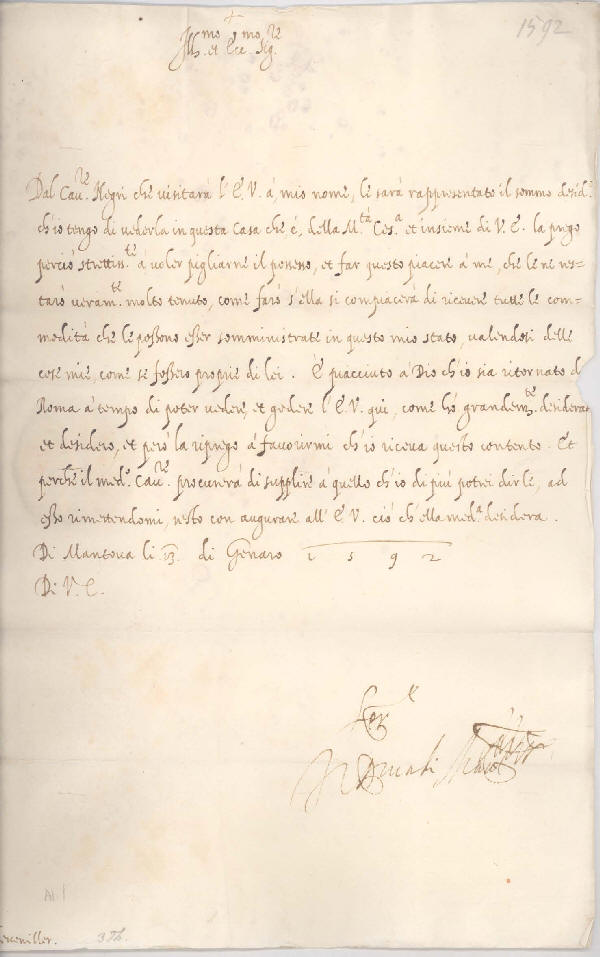 1592
Ill.mo et Ecc.mo Sig.re
Dal Cau.re Negri che uisitarà l'E.V. à mio nome, le sarà rappresentato il sommo desid.o
ch'io tengo di uederla in questa Casa che, è, della M.tà Ces.a et insieme di V.E. la prego
perciò strettis.te à uoler pigliarne il possesso, et far questo piacere à me, che le ne res=
tarò ueram.te molto tenuto, come farò s'ella si compiacerà di riceuere tutte le com=
modità che le possono esser somministrate in questo mio stato, ualendosi delle
cose mie, come se fossero proprie di lei. È piacciuto à Dio ch'io sia ritornato d
Roma à tempo di poter uedere, et godere l'E.V. qui, come hò grandem.te desiderat
et desidero, et però la riprego à fauorirmi ch'io riceua questo contento. Et
perche il med.o Cau.re procurerà di supplire à quello ch'io di più potrei dirle, ad
esso rimettendomi, resto con augurare all'E.V. ciò ch'ella med.a desidera.
Di Mantoua li 13 di Genaro 1592
Di V.E.
Ser.e
Il Duca di Mant